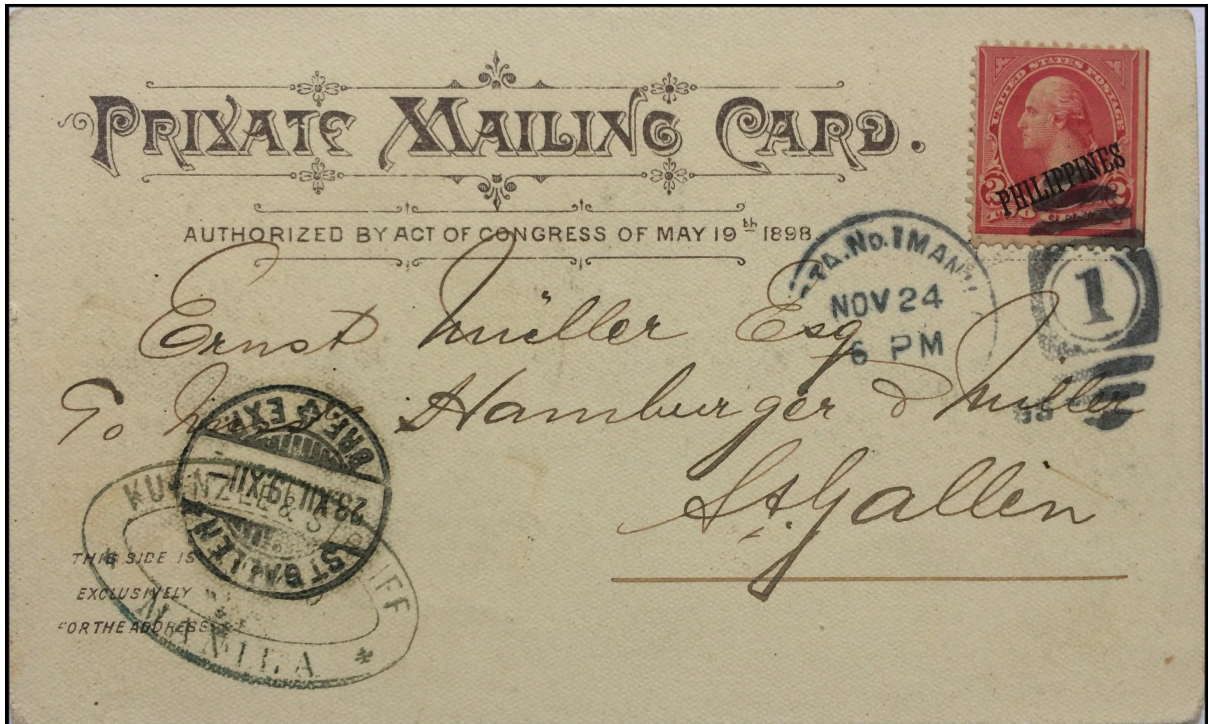 PRIVATE MAILING CARD.
AUTHORIZED BY ACT OF CONGRESS OF MAY 19th 1898.
UNITED STATES POSTAGE
PHILIPPINES
2 2
STA. No. 1 MANI
NOV 24
6 PM
1
Ernst Müller Esq
To Hamburger & Müller
St. Gallen
BRF. EXP.
23.XII.19.XII
ST GALLEN
KUENZLE & STREIFF
MANILA
THIS SIDE IS
EXCLUSIVELY
FOR THE ADDRESS